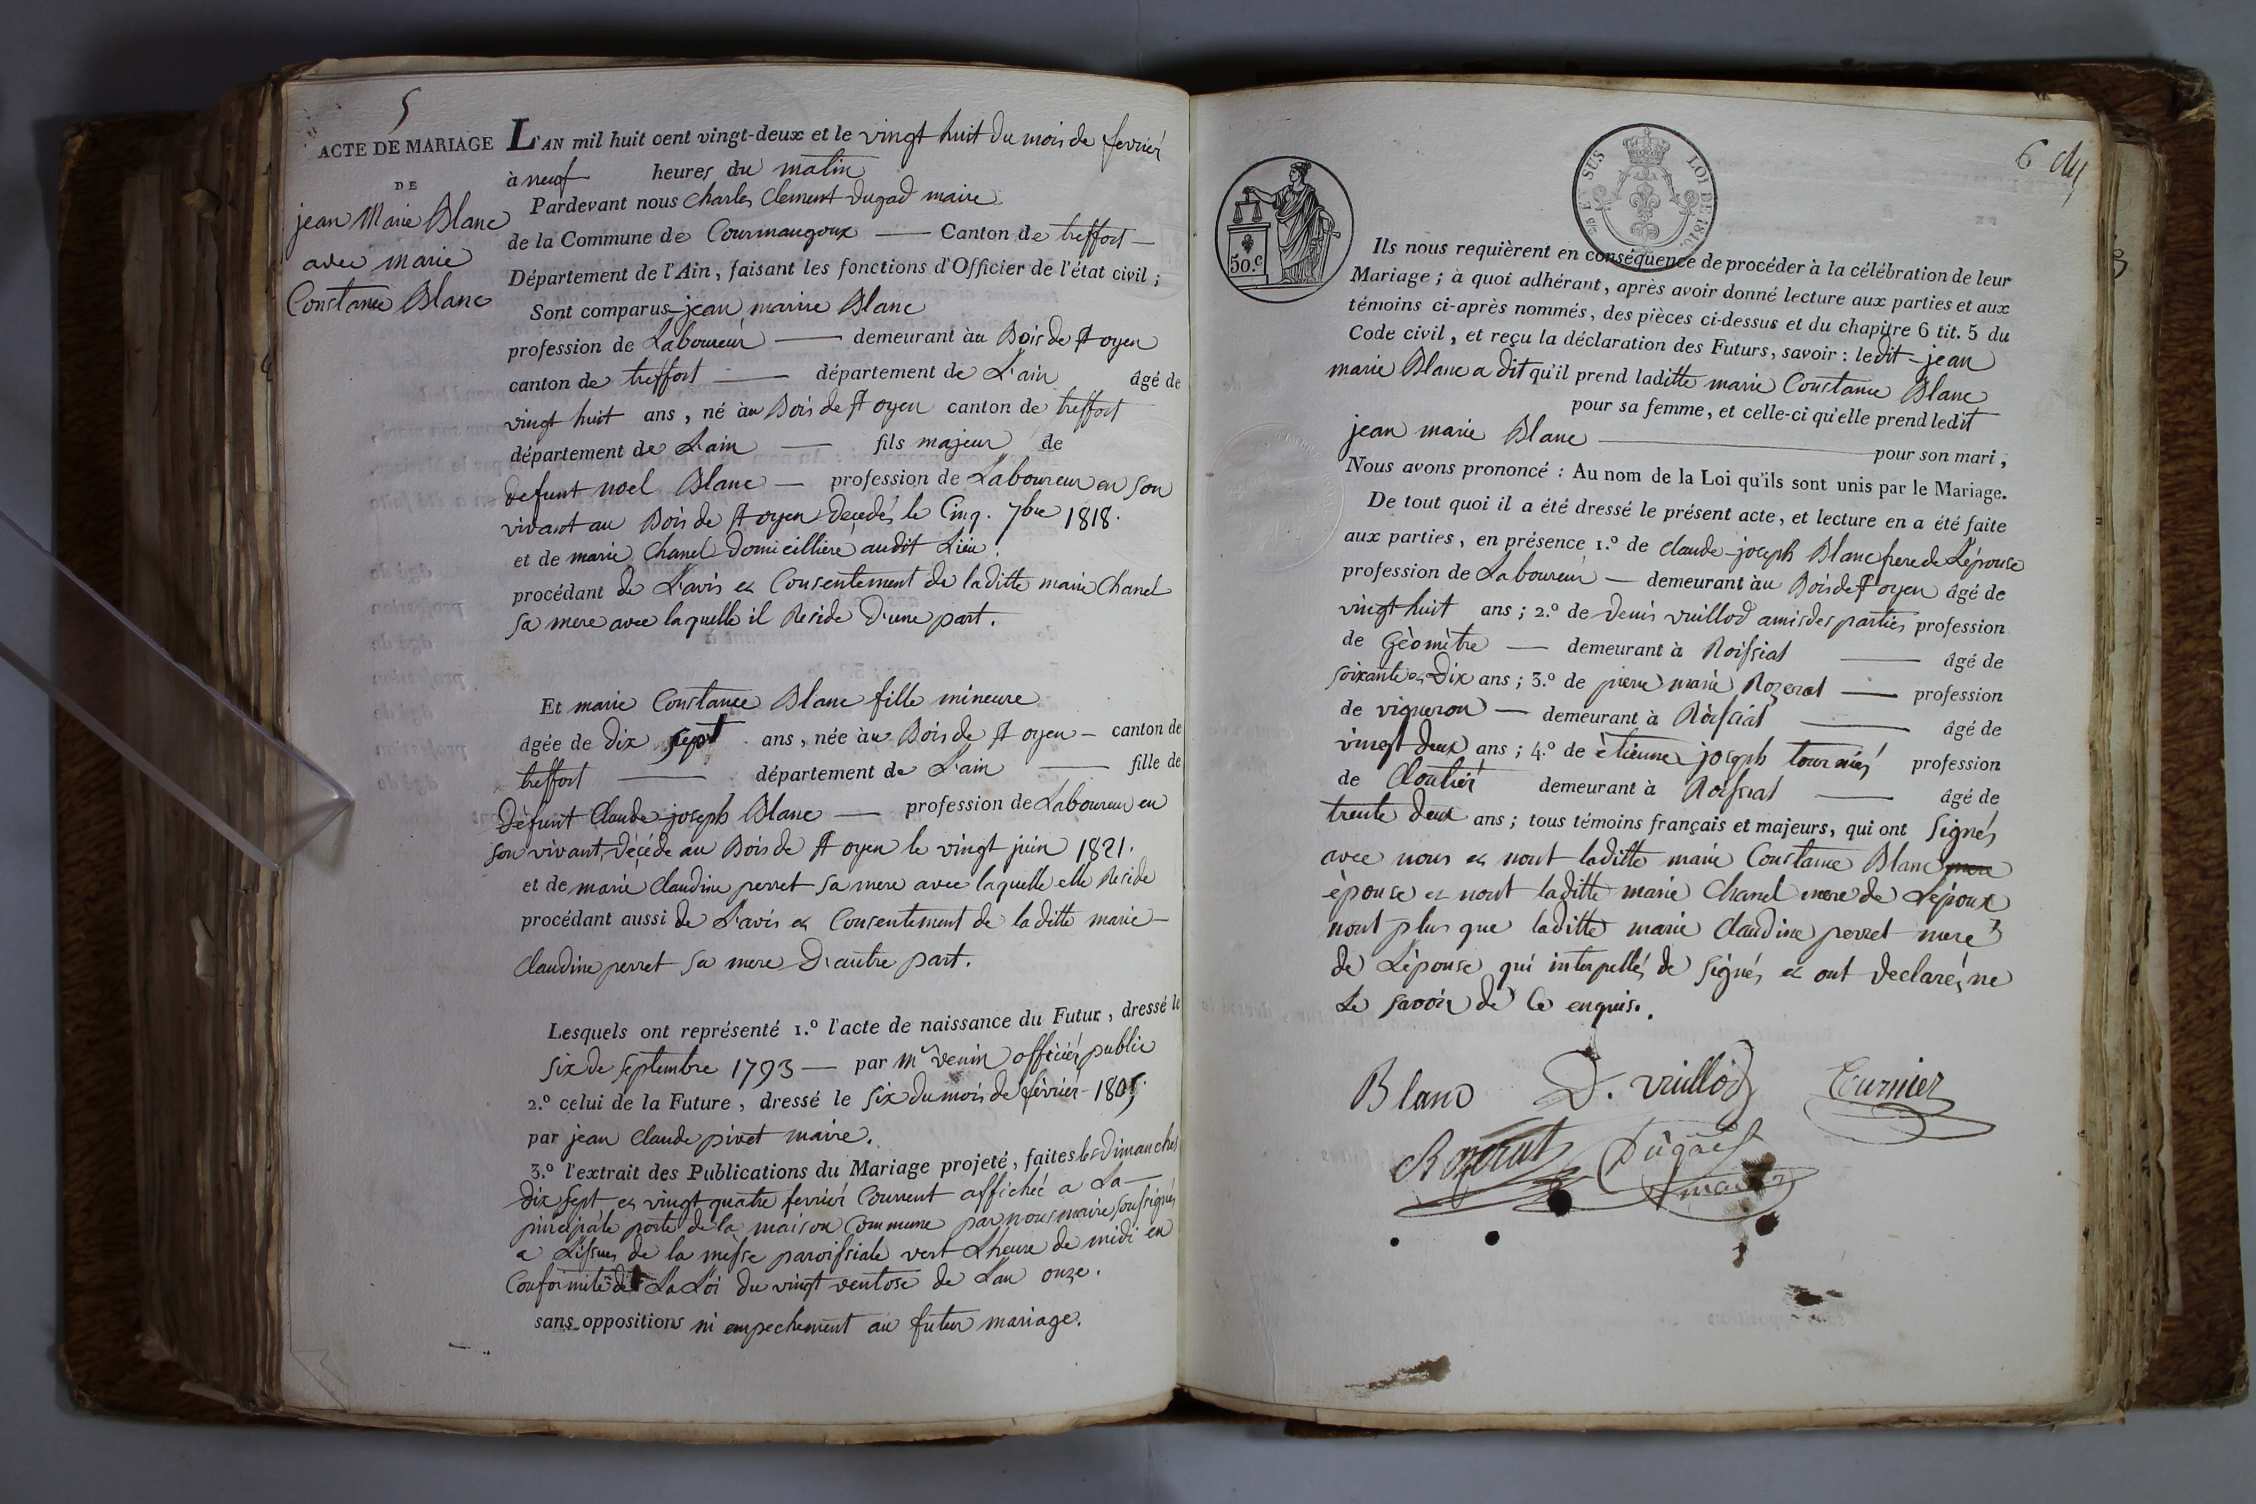 5
ACTE DE MARIAGE
DE
jean Marie Blanc
avec marie
Constance Blanc
L'AN mil huit cent vingt-deux et le vingt huit du mois de fevrier
à neuf heures du matin
Pardevant nous Charles Clement Dugad maire
de la Commune de Courmangoux — Canton de treffort —
Département de l'Ain, faisant les fonctions d'Officier de l'état civil ;
Sont comparus jean marie Blanc
profession de Laboureur — demeurant àu Bois de st oyen
canton de treffort — département de L'ain âgé de
vingt huit ans, né àu Bois de st oyen canton de treffort
département de L'ain — fils majeur de
defunt noel Blanc — profession de Laboureur en son
vivant au Bois de st oyen décédés le Cinq. 7bre 1818.
et de marie Chanel domicilliere audit Lieu.
procédant de L'avis et Consentement de laditte marie Chanel
sa mere avec laquelle il Reside D'une part.
Et marie Constance Blanc fille mineure
âgée de dix sept ans, née àu Bois de st oyen — canton de
treffort — département de L'ain — fille de
Défunt Claude joseph Blanc — profession de Laboureur en
son vivant, décédé au Bois de st oyen le vingt juin 1821.
et de marie Claudine perret sa mere avec laquelle elle Reside
procédant aussi de L'avis et Consentement de laditte marie —
Claudine perret sa mere D'autre part.
Lesquels ont représenté 1.º l'acte de naissance du Futur, dressé le
six de septembre 1793 — par mr venin officier public
2.º celui de la Future, dressé le six du mois de février 1805
par jean Claude pivet maire.
3.º l'extrait des Publications du Mariage projeté, faites les Dimanches
Dix sept et vingt quatre fevrier Courrent affichée a La
principale porte de la maison Commune par nous maire soussignés
a L'issue de la messe paroissiale vert L'heure de midi en
Conformité de La Loi du vingt ventose de L'an onze.
sans oppositions ni empechement au futur mariage.
6
50.c
SUS
LOI DE 1816.
Ils nous requièrent en conséquence de procéder à la célébration de leur
Mariage ; à quoi adhérant, après avoir donné lecture aux parties et aux
témoins ci-après nommés, des pièces ci-dessus et du chapitre 6 tit. 5 du
Code civil, et reçu la déclaration des Futurs, savoir : ledit jean
marie Blanc a dit qu'il prend laditte marie Constance Blanc
pour sa femme, et celle-ci qu'elle prend ledit
jean marie Blanc — pour son mari,
Nous avons prononcé : Au nom de la Loi qu'ils sont unis par le Mariage.
De tout quoi il a été dressé le présent acte, et lecture en a été faite
aux parties, en présence 1.º de Claude joseph Blanc frere de L'épouse
profession de Laboureur — demeurant àu Bois de st oyen âgé de
vingt huit ans ; 2.º de Denis vuillod amis des parties profession
de Géomètre — demeurant à Roissiat — âgé de
soixante et Dix ans ; 3.º de pierre marie Rozerat — profession
de vigneron — demeurant à Roissiat — âgé de
vingt deux ans ; 4.º de étienne joseph tournier profession
de Cloutier demeurant à Roissiat — âgé de
trente deux ans ; tous témoins français et majeurs, qui ont signés
avec nous et nont laditte marie Constance Blanc mere
épouse et nont laditte marie Chanel mere de L'époux
nont plus que laditte marie Claudine perret mere
de L'épouse qui interpellés de signés et ont declarés ne
Le savoir de Ce enquis.
Blanc D. vuillod Tournier
Rozerat Dugad
maire